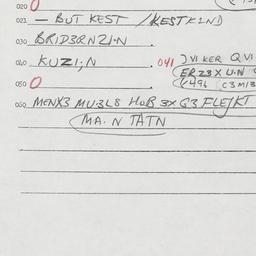 020 0
023 — BUT KEST / KESTKIND
030 BRID3RNZI·N
040 KUZI;N . 041 VIKER QVI
ER Z3X U·N
K496 (C3M1B
050 0
060 MENX3 MU·3LS HOB 3X G3 FLEJKT
(MA·N TATN